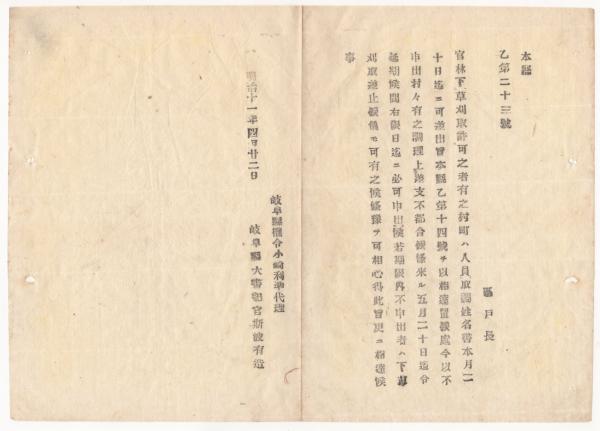 本縣
乙第二十三號
區戸長
官林下草刈取許可之者有之村町ハ人員取調姓名書本月二
十日迄ニ可差出旨本縣乙第十四號ヲ以相達置候處今以不
申出村々有之調理上差支不都合候條来ル五月二十日迄令
延期候間右限日迄ニ必可申出候若期限内不申出者ハ下草
刈取差止候儀モ可有之候條豫テ可相心得此旨更ニ相達候
事
明治十一年四月廿二日
岐阜縣權令小崎利準代理
岐阜縣大書記官斯波有造